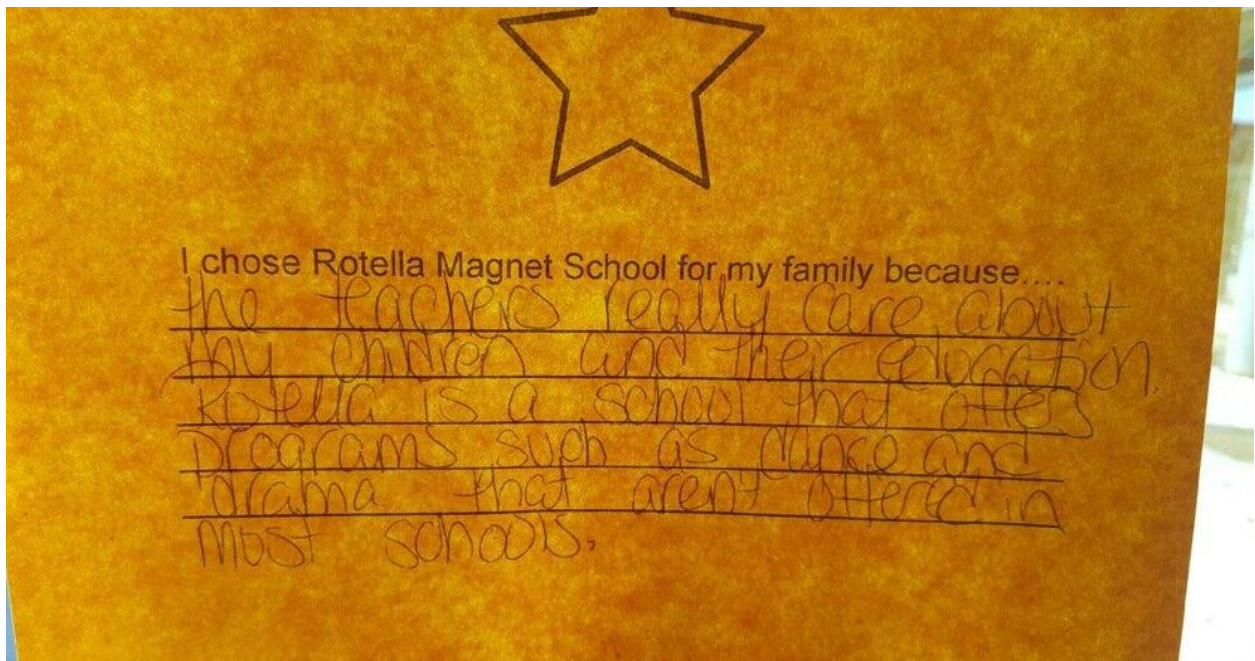 I chose Rotella Magnet School for my family because....
the teachers really care about
my children and their education.
Rotella is a school that offers
programs such as dance and
drama that aren't offered in
most schools.